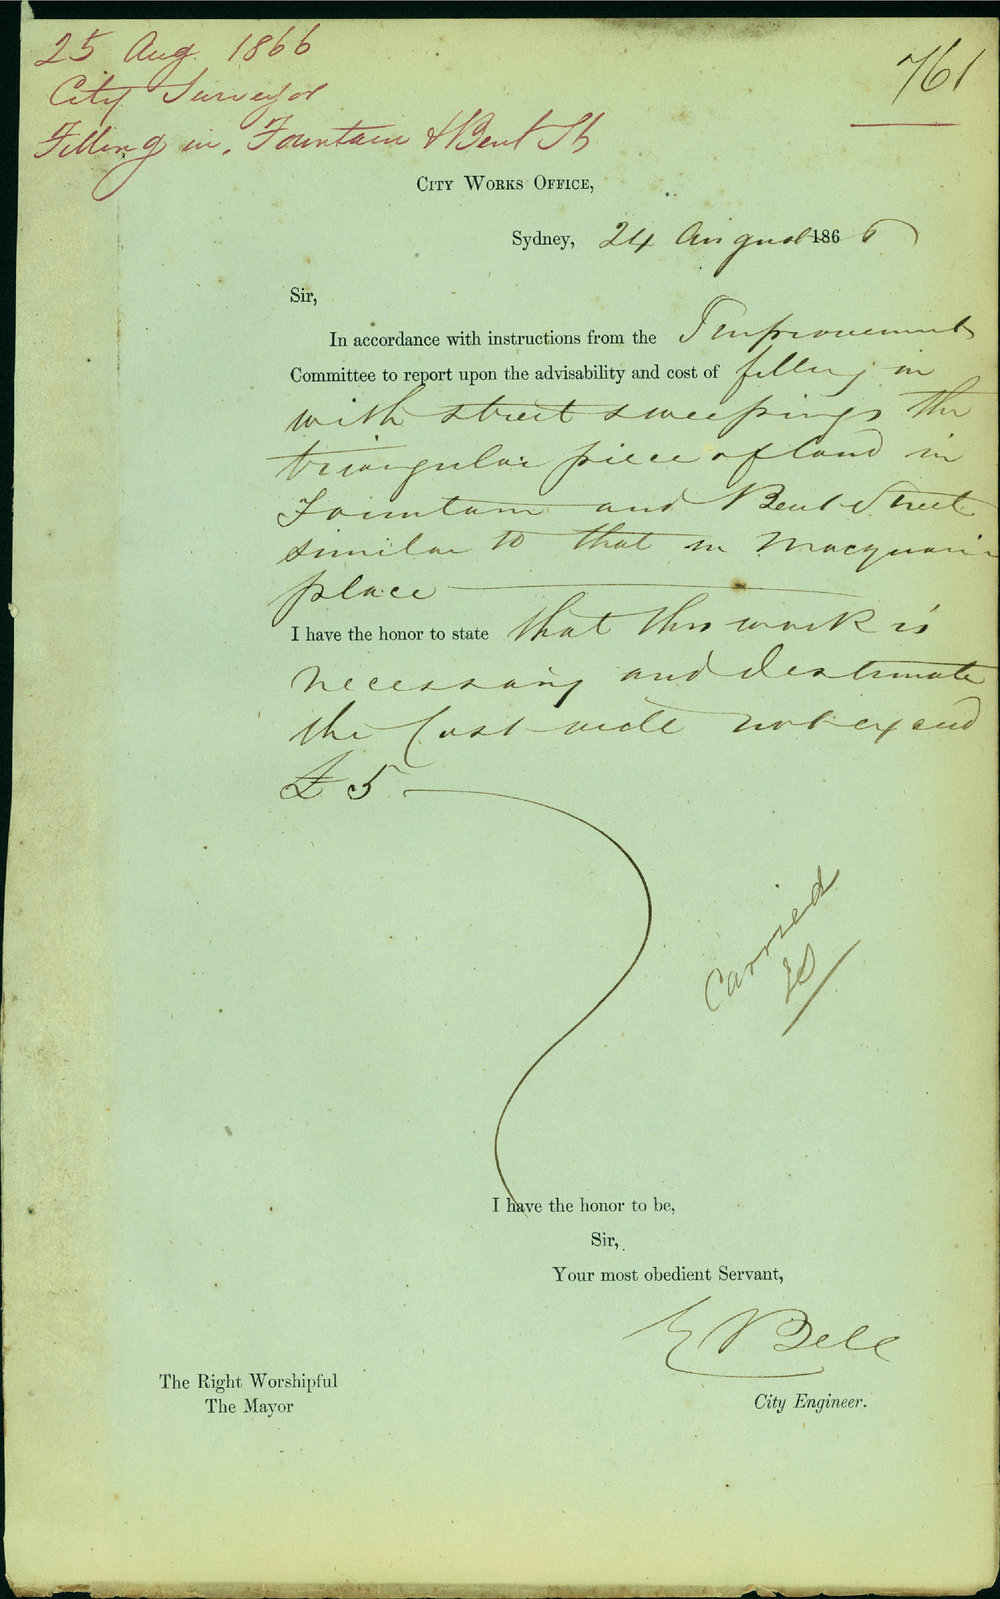 25 Aug 1866
761
City Surveyor
Filling in, Fountain & Bent St
CITY WORKS OFFICE,
Sydney, 24 August 1866
Sir,
In accordance with instructions from the Improvement
Committee to report upon the advisability and cost of filling in
with street sweepings the
triangular piece of land in
Fountain and Bent Street
similar to that in Macquarie
place
I have the honor to state that this work is
necessary and I estimate
the Cost will not exceed
£5
Carried
I have the honor to be,
Sir,
Your most obedient Servant,
E Bell
The Right Worshipful
The Mayor
City Engineer.